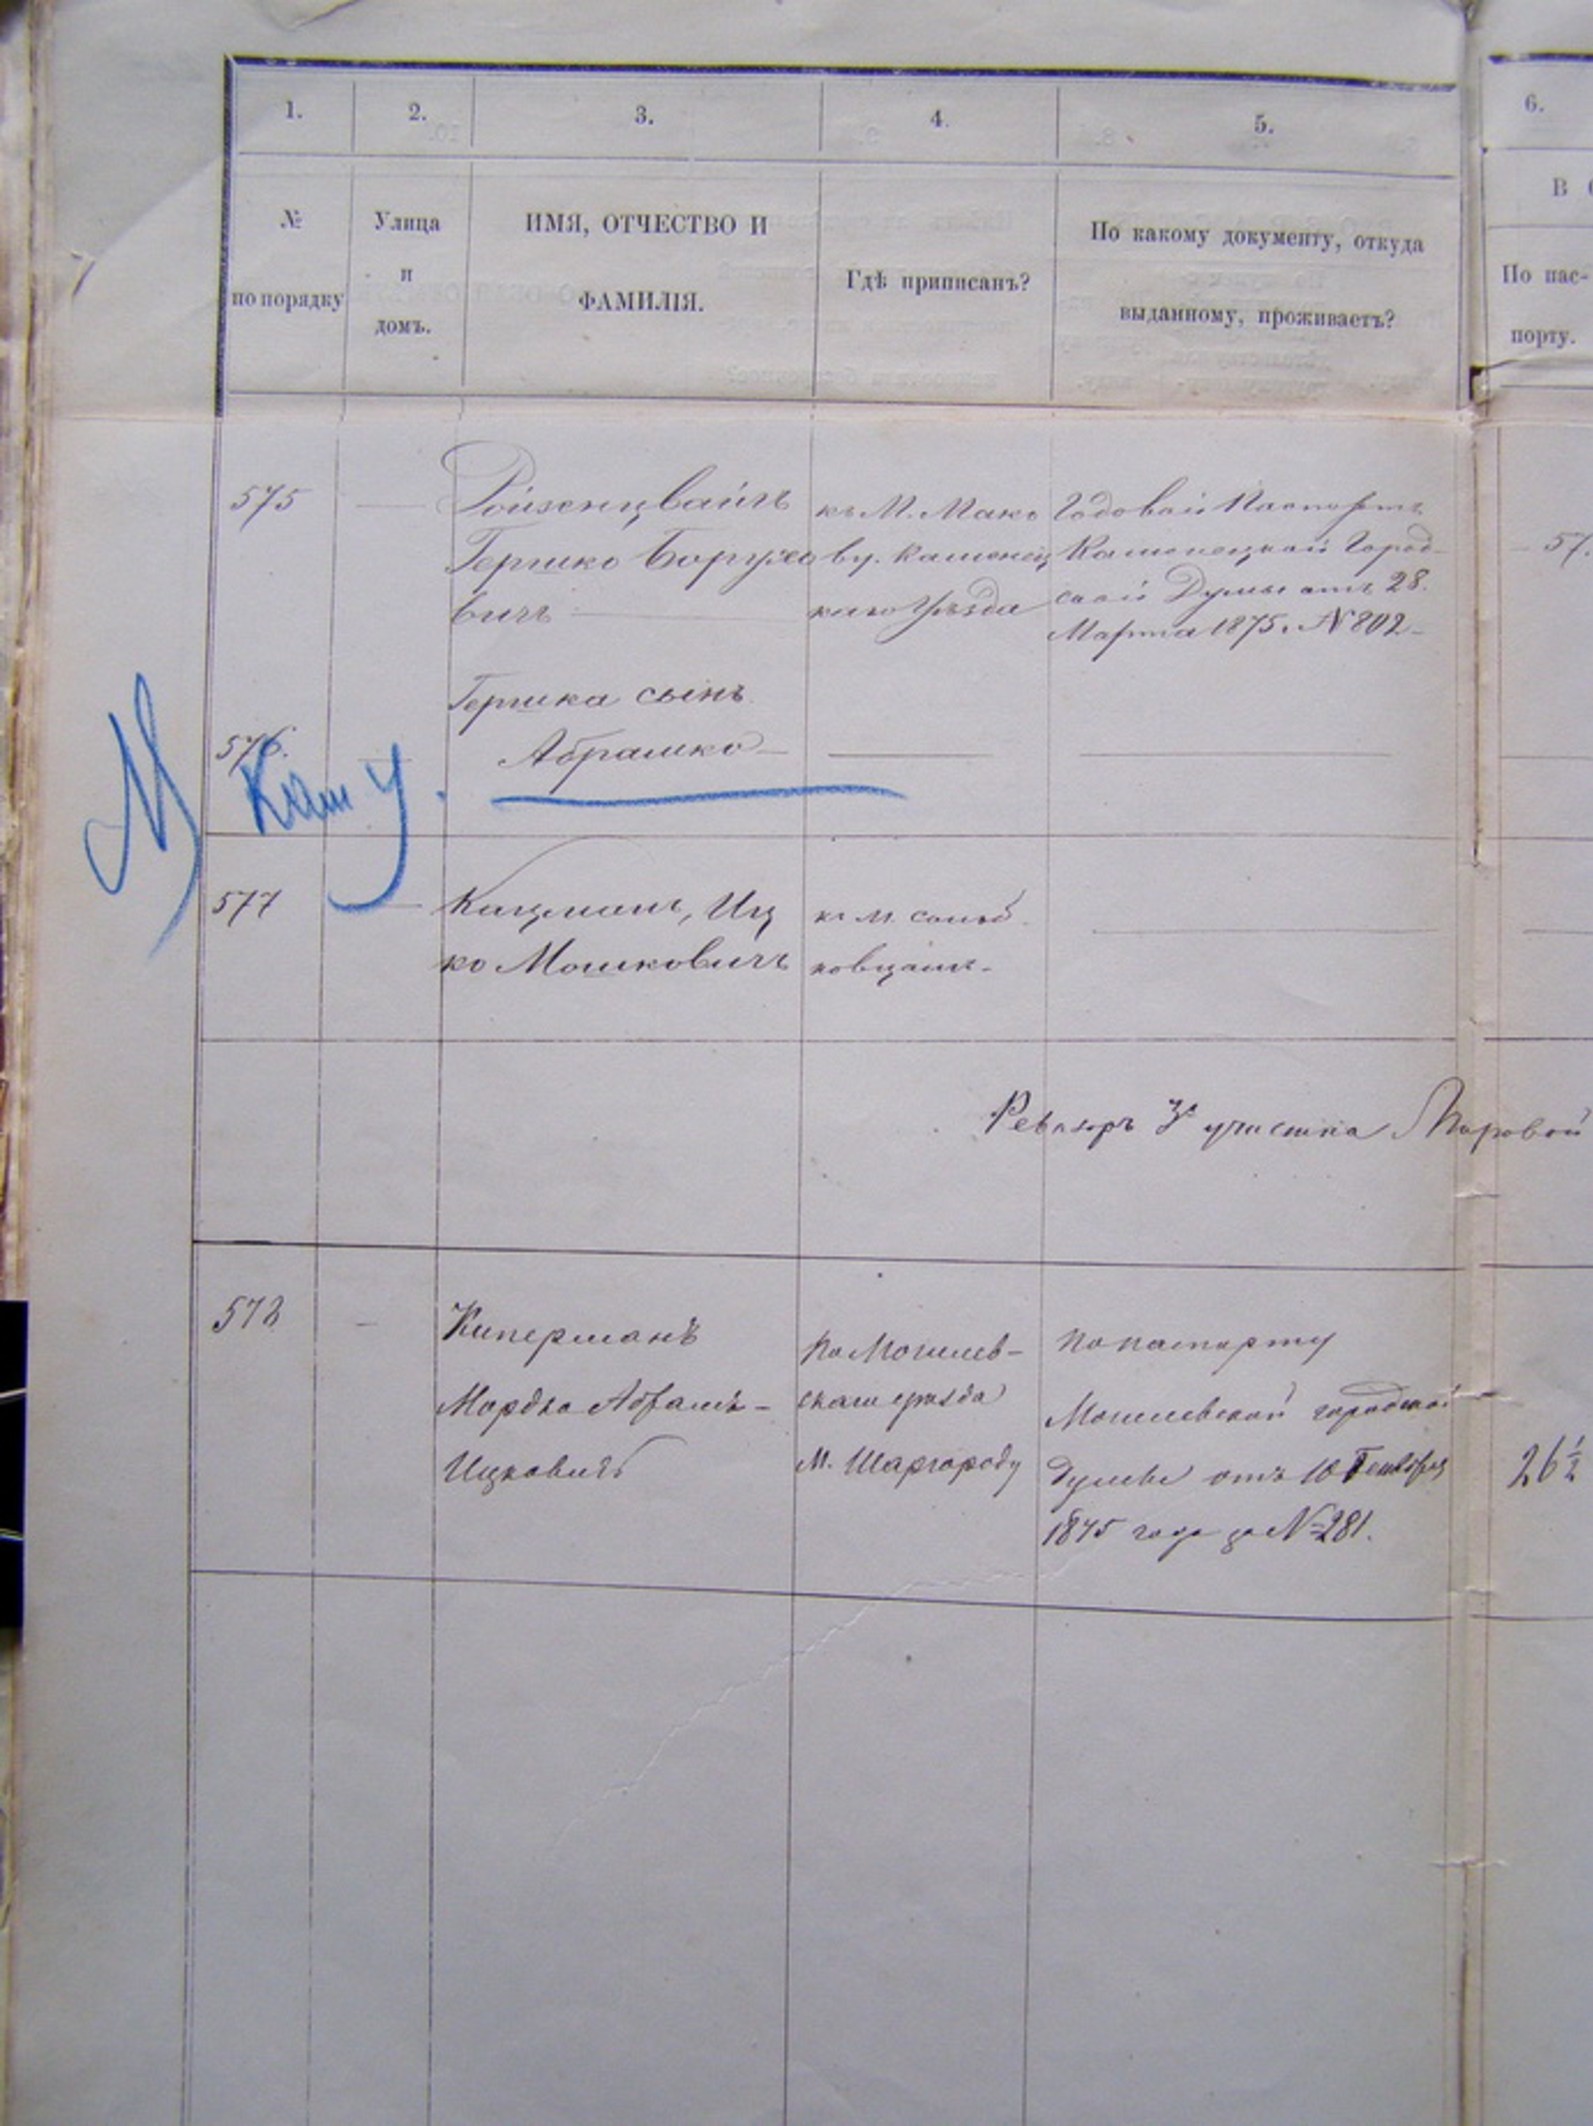 1. 2. 3. 4. 5. 6.
№
по порядку
Улица
и
домъ.
ИМЯ, ОТЧЕСТВО И
ФАМИЛІЯ.
Гдѣ приписанъ?
По какому документу, откуда
выданному, проживаетъ?
В
По пас-
порту.
575
Ройзенцвайгъ
Гершко Борухо
вичъ
къ М. Мако
ву. Каменец
каго Уѣзда
Годовой Паспортъ
Каменецкой Город-
ской Думы отъ 28.
Марта 1875. N 802
57
576.
Гершка сынъ
Абрамко
М Кам У.
577
Кацманъ, Иц
ко Мошковичъ
къ м.
ковцамъ
Ревизоръ 3го участка
578
Киперманъ
Мордко Абрамъ-
Ицковичъ
По Могилев-
скаго уѣзда
М. Шаргороду
По паспорту
Могилевской городской
Думы отъ 10 Генваря
1875 года за № 281.
26 1/2